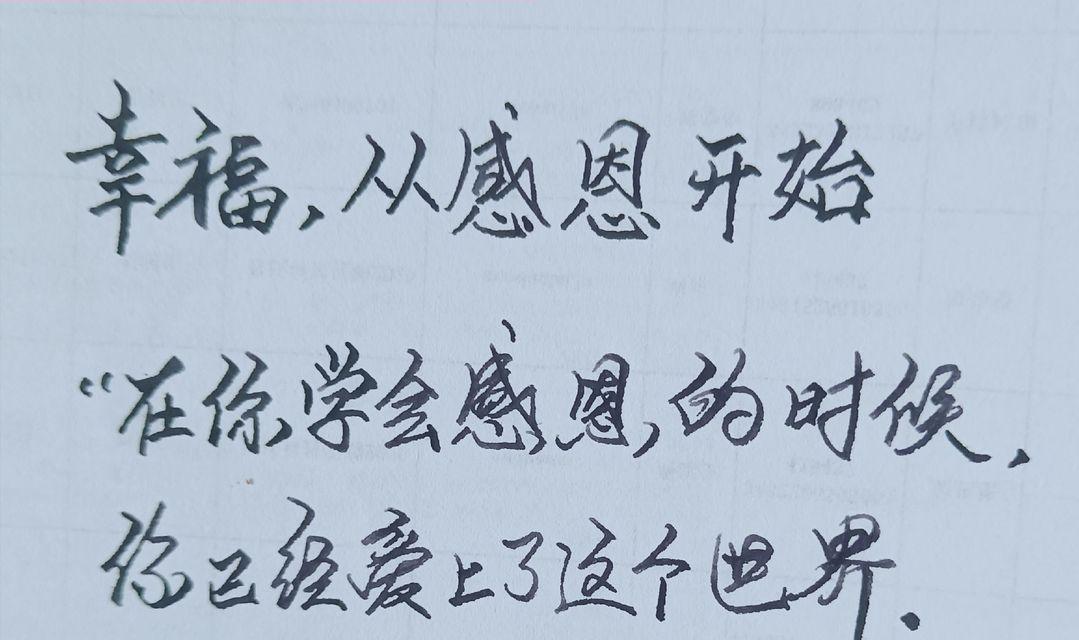 幸福,从感恩开始
“在你学会感恩,的时候,
你已经爱上了这个世界.